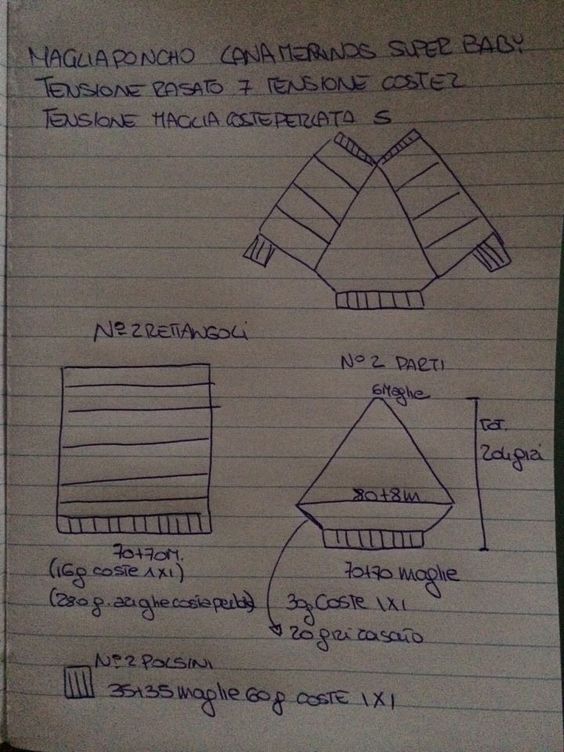 MAGLIA PONCHO LANA MERINOS SUPER BABY
TENSIONE RASATO 7 TENSIONE COSTE 2
TENSIONE MAGLIA COSTE PERLATA 5
Nº 2 RETTANGOLI
Nº 2 PARTI
6 Maglie
TOT.
204 giri
80+8m
70+70M.
(16g coste 1X1)
(280 g. righe coste perlata)
70+70 maglie
3g COSTE 1X1
20 giri rasato
Nº 2 POLSINI
35+35 maglie 60 g COSTE 1X1